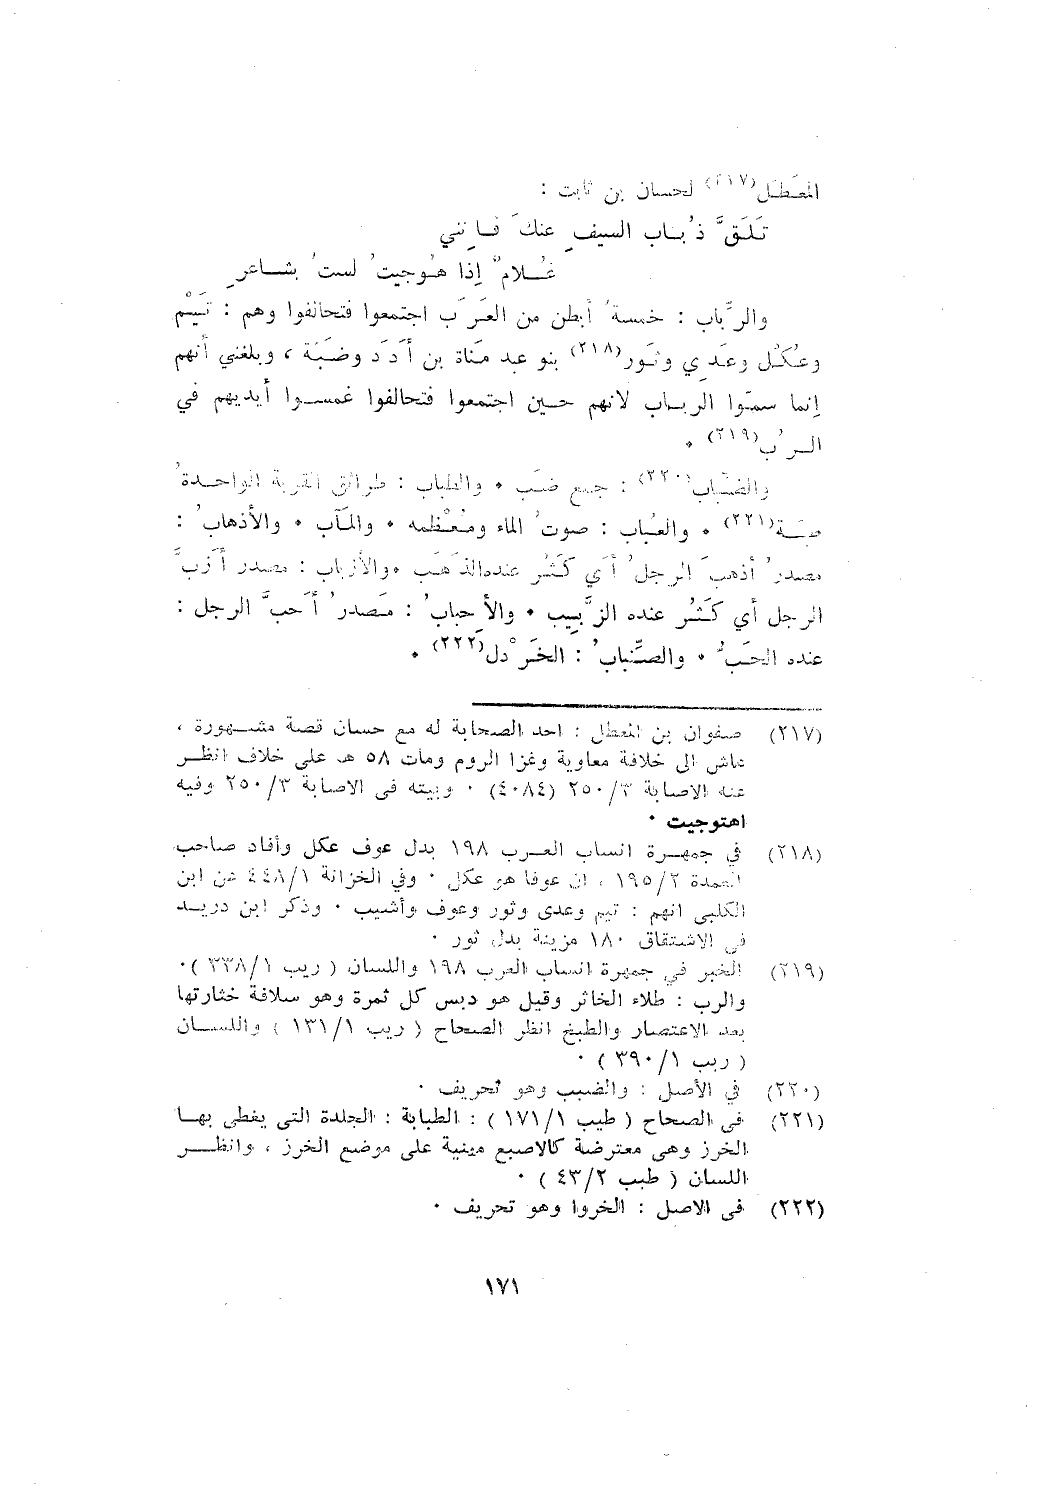 المعَطل(٢١٧) لحسان بن ثابت :
تَلَقَّ ذُباب السيفِ عنكَ فاِنني
غُلامٌ إِذا هُوجيتُ لستُ بشاعرِ
والرَّباب : خمسةُ أبطن من العَرَب اجتمعوا فتحالفوا وهم : تَيْم
وعُكْل وعَدِي وثَور(٢١٨) بنو عبد مَناة بن أُدَد وضَبَة ، وبلغني أنهم
إِنما سمّوا الرباب لانهم حين اجتمعوا فتحالفوا غمسوا أيديهم في
الرُب(٢١٩) .
والضَّباب(٢٢٠) : جمع ضَب . والطباب : طرائق القربة الواحدةُ
طبَة(٢٢١) . والعُباب : صوتُ الماء ومُعْظمه . والمآب . والأذهابُ :
مصدرُ أذهبَ الرجلُ أي كَثُر عنده الذَهَب . والأزباب : مصدر أَزَبَّ
الرجل أي كَثُر عنده الزَّبيب . والأحبابُ : مَصدرُ أَحَبَّ الرجل :
عنده الحَبُّ . والصِّنابُ : الخَرْدل(٢٢٢) .
(٢١٧) صفوان بن المعطل : احد الصحابة له مع حسان قصة مشهورة ،
عاش الى خلافة معاوية وغزا الروم ومات ٥٨ هـ على خلاف انظر
عنه الاصابة ٢٥٠/٣ (٤٠٨٤) . وبيته في الاصابة ٢٥٠/٣ وفيه
اهتوجيت .
(٢١٨) في جمهرة انساب العرب ١٩٨ بدل عوف عكل وأفاد صاحب
العمدة ١٩٥/٢ ، ان عوفا هو عكل . وفي الخزانة ٤٤٨/١ عن ابن
الكلبي انهم : تيم وعدى وثور وعوف وأشيب . وذكر ابن دريد
في الاشتقاق ١٨٠ مزينة بدل ثور .
(٢١٩) الخبر في جمهرة انساب العرب ١٩٨ واللسان ( ربب ٣٣٨/١ ) .
والرب : طلاء الخاثر وقيل هو دبس كل ثمرة وهو سلافة خثارتها
بعد الاعتصار والطبخ انظر الصحاح ( ربب ١٣١/١ ) واللسان
( ربب ٣٩٠/١ ) .
(٢٢٠) في الأصل : والضبب وهو تحريف .
(٢٢١) في الصحاح ( طبب ١٧١/١ ) : الطبابة : الجلدة التي يغطى بها
الخرز وهى معترضة كالاصبع مبنية على موضع الخرز ، وانظر
اللسان ( طبب ٤٣/٢ ) .
(٢٢٢) في الاصل : الخروا وهو تحريف .
١٧١